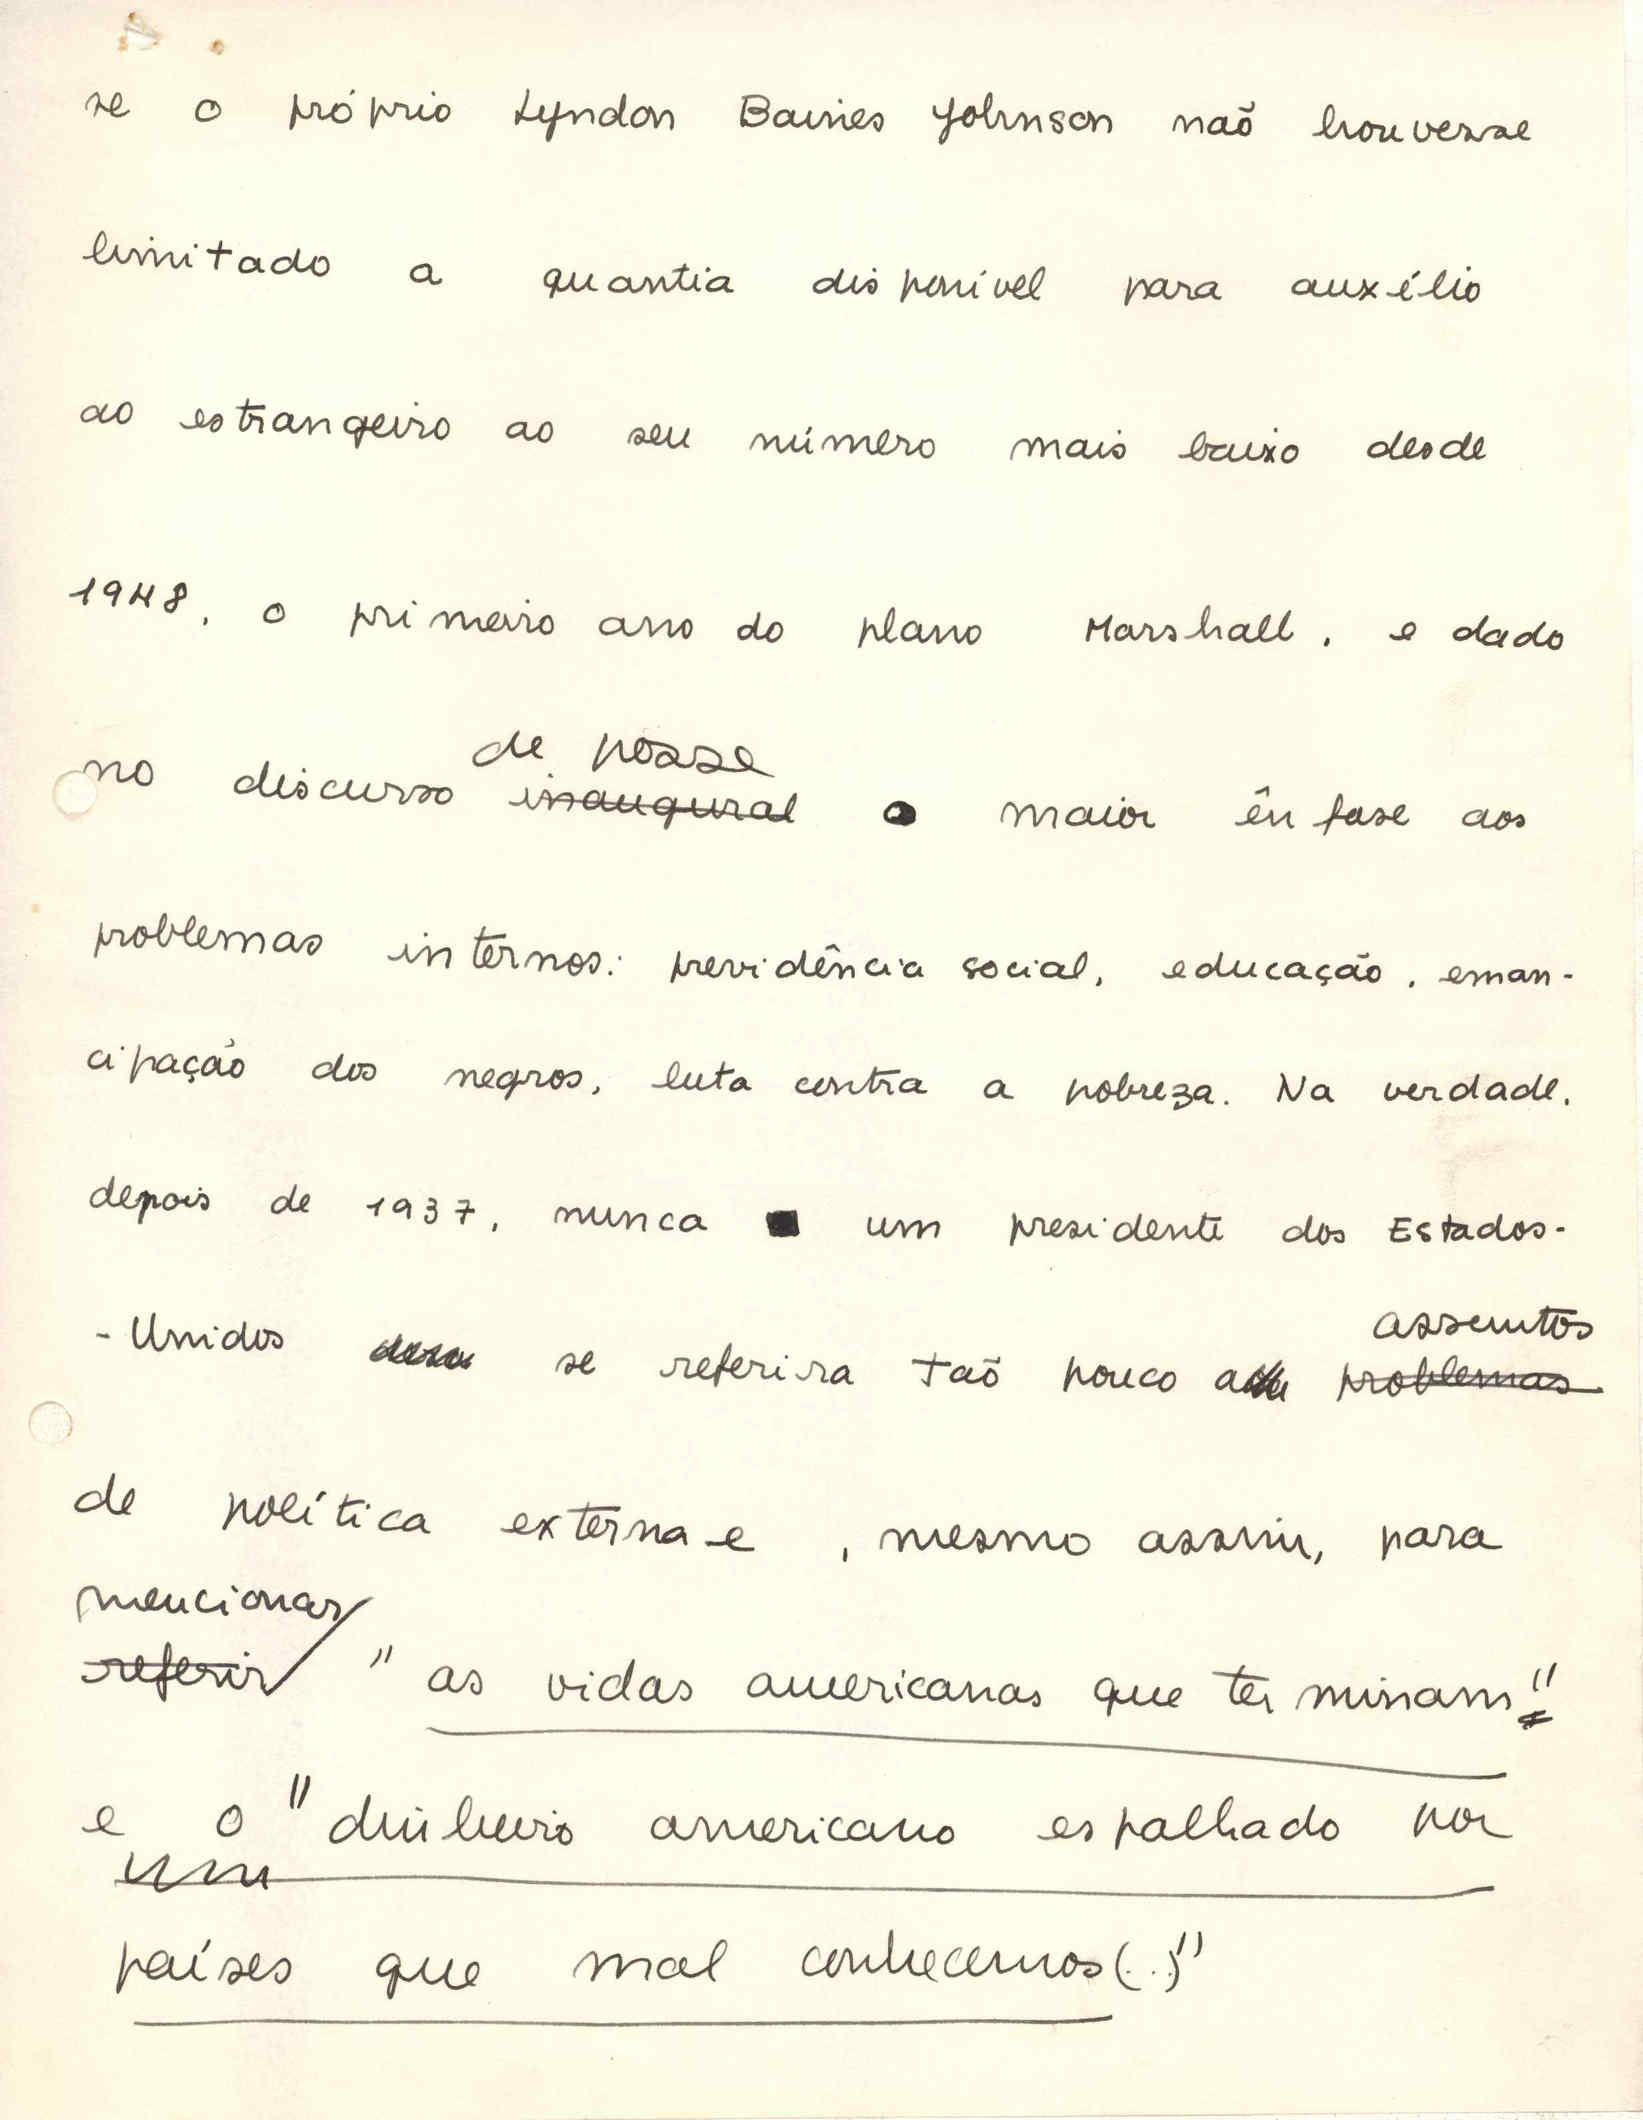 se o próprio Lyndon Baines Johnson não houvesse
limitado a quantia disponível para auxílio
ao estrangeiro ao seu número mais baixo desde
1948, o primeiro ano do plano Marshall, e dado
de posse
no discurso inaugural maior ênfase aos
problemas internos: previdência social, educação, eman-
cipação dos negros, luta contra a pobreza. Na verdade,
depois de 1937, nunca um presidente dos Estados-
assuntos
-Unidos se referira tão pouco a problemas
de política externa e, mesmo assim, para
mencionar
referir "as vidas americanas que terminam"
e o "dinheiro americano espalhado por
países que mal conhecemos(..)"